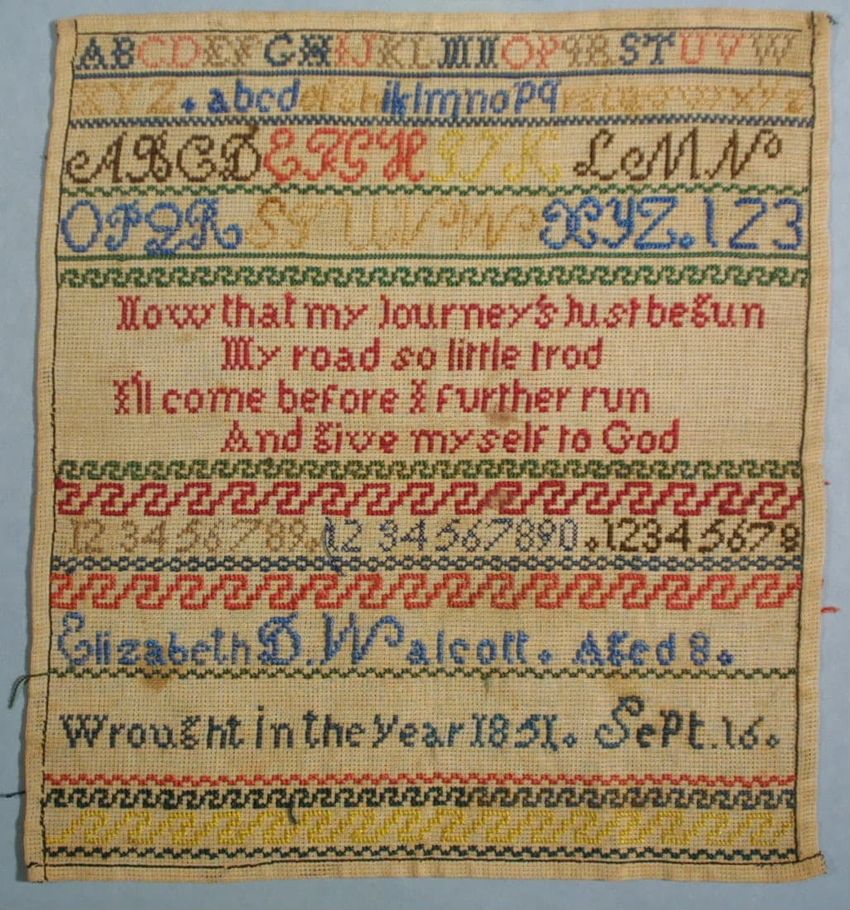 ABCDEFGHIJKLMNOPQRSTUVW
XYZ.abcdefghiklmnopqrstuvwxyz
ABCDEFGHIJKLMN
OPQRSTUVWXYZ.123
Now that my Journey's Just begun
My road so little trod
I'll come before I further run
And give myself to God
123456789.1234567890.12345678
Elizabeth D. Walcott. Aged 8.
Wrought in the year 1851. Sept. 16.